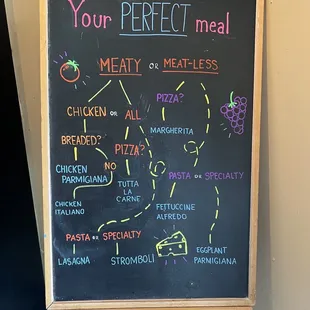 Your PERFECT meal
MEATY OR MEAT-LESS
PIZZA?
CHICKEN OR ALL
MARGHERITA
BREADED?
PIZZA?
CHICKEN
PARMIGIANA
NO
PASTA OR SPECIALTY
TUTTA
LA
CARNE
CHICKEN
ITALIANO
FETTUCCINE
ALFREDO
PASTA OR SPECIALTY
LASAGNA
STROMBOLI
EGGPLANT
PARMIGIANA